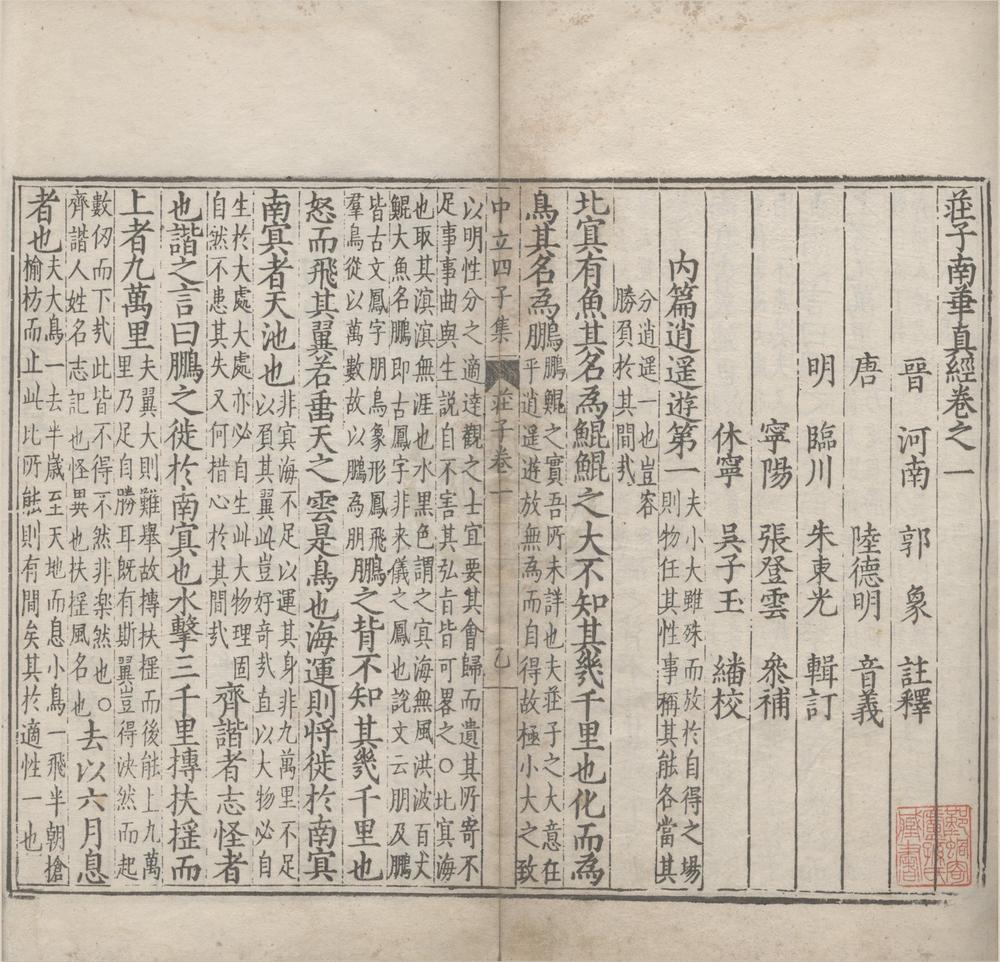 莊子南華真經卷之一
晉 河南 郭 象 註釋
唐 陸德明 音義
明 臨川 朱東光 輯訂
寧陽 張登雲 叅補
休寧 吳子玉 繙校
内篇逍遥遊第一
夫小大雖殊而放於自得之場
則物任其性事稱其能各當其
分逍遥一也豈容
勝負於其間㢤
北冥有魚其名為鯤鯤之大不知其㡬千里也化而為
鳥其名為鵬
鵬鯤之實吾所未詳也夫莊子之大意在
乎逍遥遊放無為而自得故極小大之致
中立四子集 莊子卷一 乙
以明性分之適達觀之士宜要其會歸而遺其所寄不
足事事曲與生説自不害其弘旨皆可畧之○此冥海
也取其溟溟無涯也水黑色謂之冥海無風洪波百丈
鯤大魚名鵬即古鳳字非来儀之鳳也説文云朋及鵬
皆古文鳳字朋鳥象形鳳飛
羣鳥從以萬數故以鵬為朋
鵬之背不知其㡬千里也
怒而飛其翼若垂天之雲是鳥也海運則將徙於南冥
南冥者天池也
非冥海不足以運其身非九萬里不足
以負其翼此豈好奇㢤直以大物必自
生於大處大處亦必自生此大物理固
自然不患其失又何措心於其間㢤
齊諧者志怪者
也諧之言曰鵬之徙於南冥也水擊三千里摶扶揺而
上者九萬里
夫翼大則難舉故摶扶揺而後能上九萬
里乃足自勝耳既有斯翼豈得決然而起
數仞而下㢤此皆不得不然非樂然也○
齊諧人姓名志記也怪異也扶揺風名也
去以六月息
者也
夫大鳥一去半嵗至天地而息小鳥一飛半朝搶
榆枋而止此比所能則有間矣其於適性一也